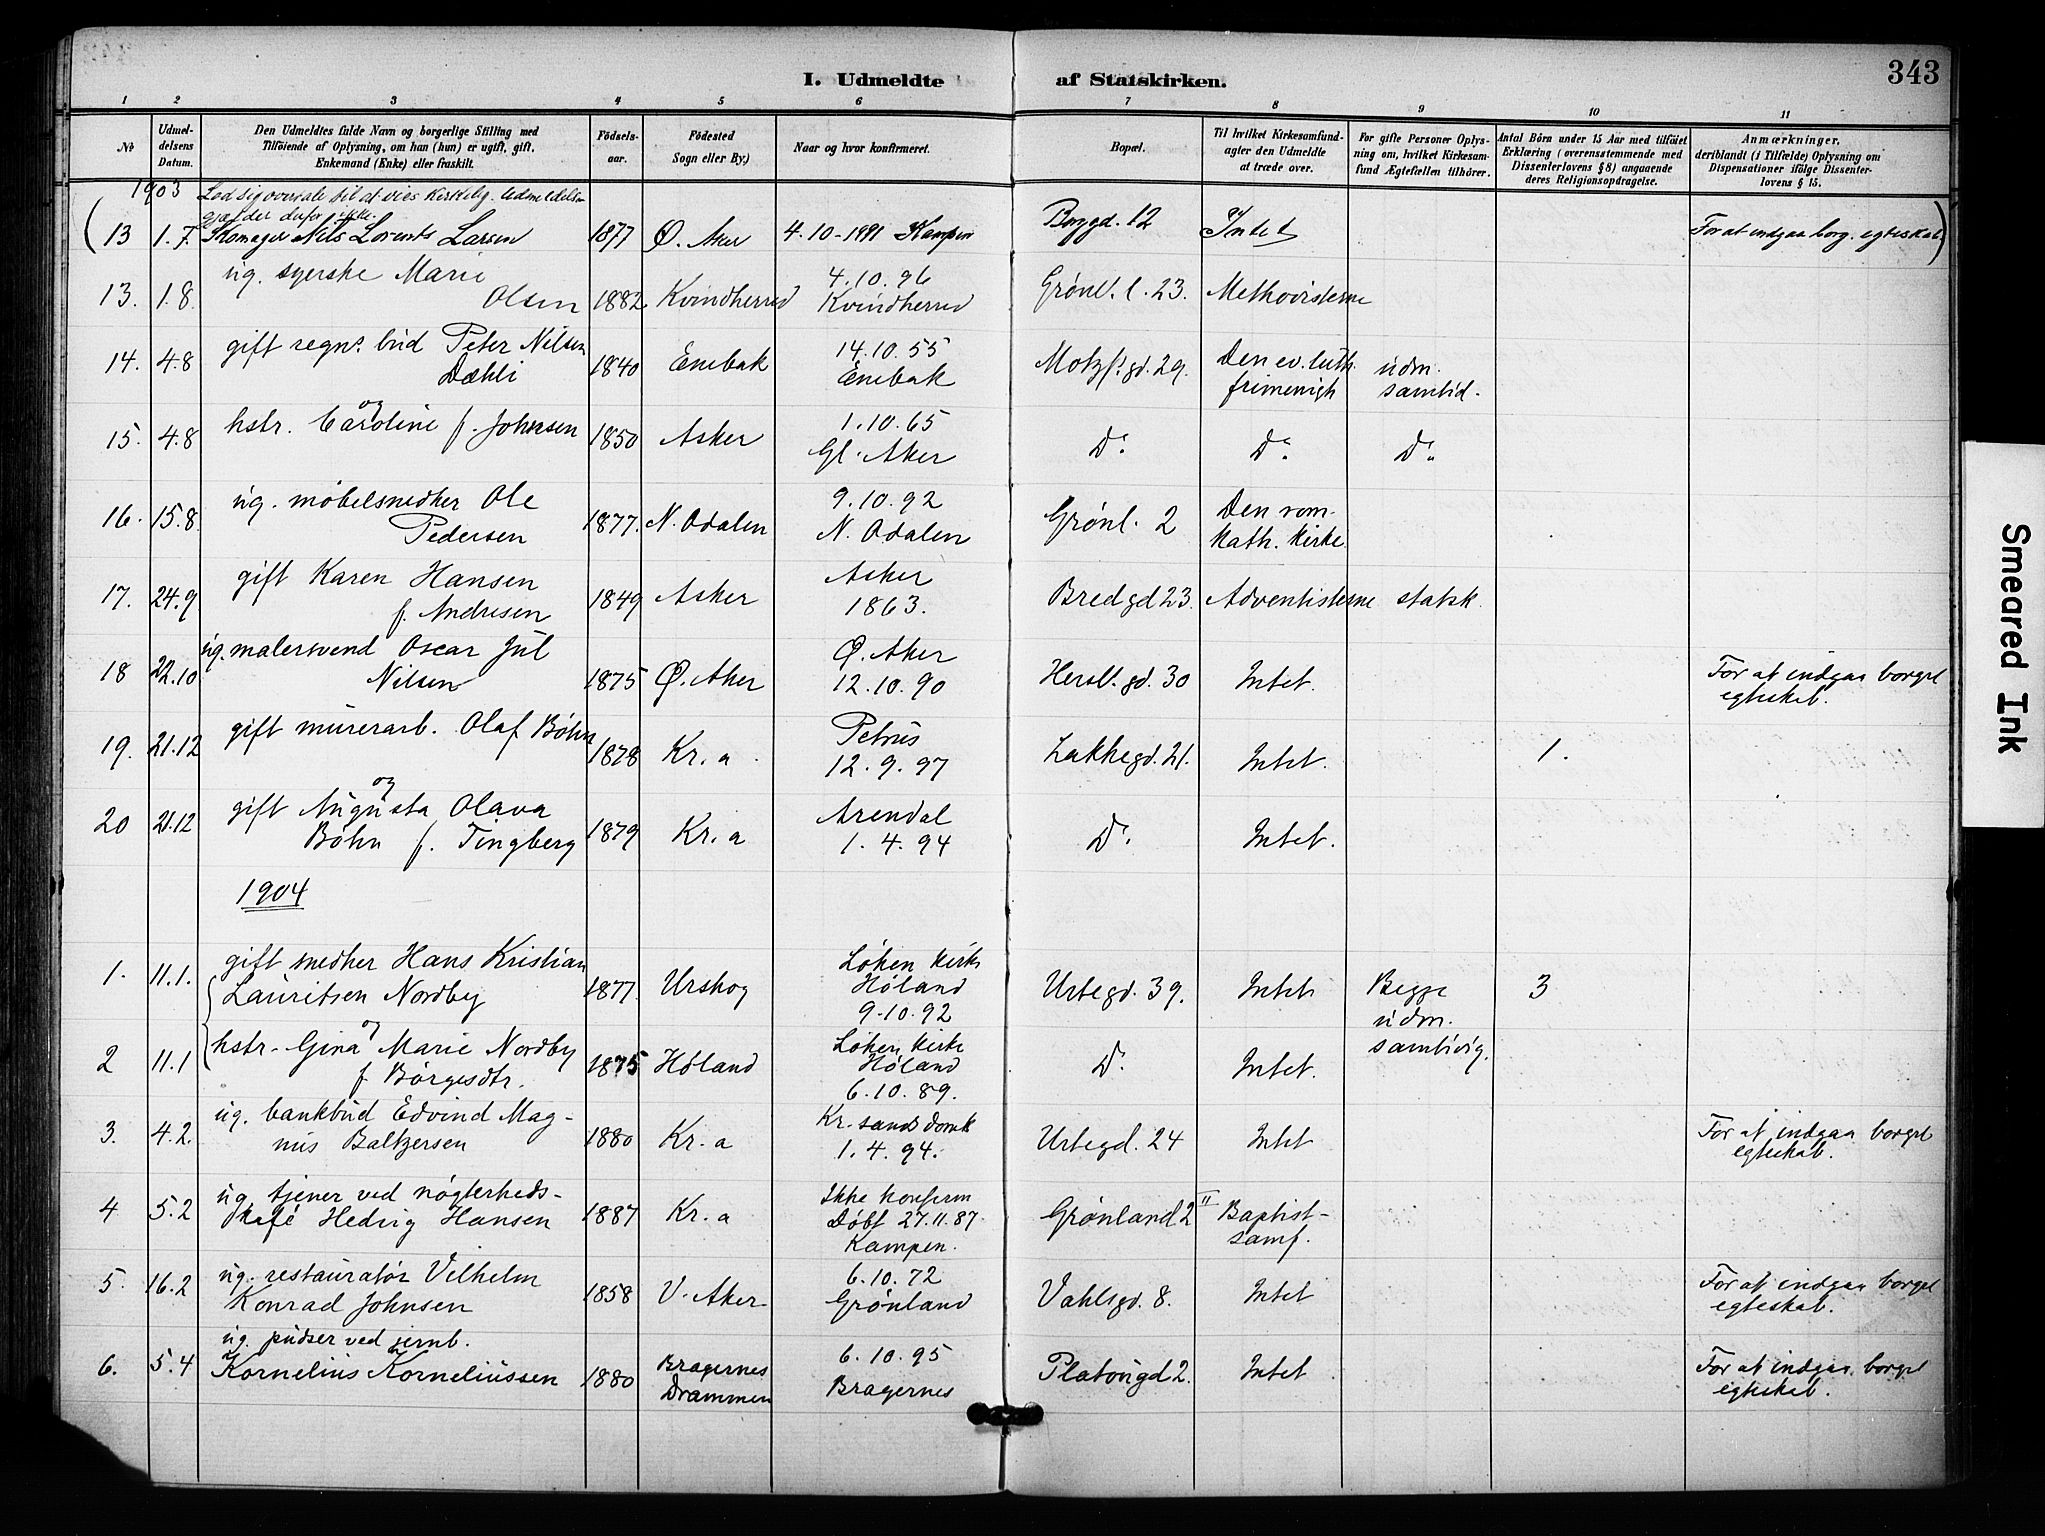 I. Udmeldte af Statskirken.
343
1 2 3 4 5 6 7 8 9 10 11
№
Udmel-
delsens
Datum.
Den Udmeldtes fulde Navn og borgerlige Stilling med
Tilföiende af Oplysning, om han (hun) er ugift, gift,
Enkemand (Enke) eller fraskilt.
Födsels-
aar.
Födested
Sogn eller By.)
Naar og hvor konfirmeret.
Bopæl.
Til hvilket Kirkesamfund-
agter den Udmeldte
at træde over.
For gifte Personer Oplys-
ning om, hvilket Kirkesam-
fund Ægtefællen tilhörer.
Antal Börn under 15 Aar med tilföiet
Erklæring (overensstemmende med
Dissenterlovens § 8) angaaende
deres Religionsopdragelse.
Anmærkninger,
deriblandt (i Tilfælde) Oplysning om
Dispensationer ifölge Dissenter-
lovens § 15.
1903
Lod sig overtale til at vies kirkelig. Udmeldelsen
gjælder derfor ikke.
(13 1.7. Skomager Nils Lorents Larsen 1877 Ø. Aker 4-10-1891 Kampen Borggd. 12 Intet For at indgaa borg. egteskab)
ug. syerske Marie 4.10.96
13. 1.8. Olsen 1882 Kvindherred Kvindherred Grønl. l. 23. Methodisterne
gift regns. bud Peter Nilsen 14.10.55 Den ev. luth. udm.
14. 4.8 Dæhli 1840 Enebak Enebak Motzf. gd. 29. frimenigh samtid.
og
hstr. Caroline f. Johnsen 1.10.65
15. 4.8 1850 Asker Gl. Aker Do Do Do
ug. möbelsnedker Ole 9.10.92 Den rom.
16. 15.8. Pedersen 1877. N. Odalen N. Odalen Grønl. 2 kath. kirke
gift Karen Hansen Asker
17. 24.9 f. Andresen 1849 Asker 1863. Bredgd 23. Adventisterne statsk.
ug. malersvend Oscar Jul Ø. Aker
18 22.10 Nilsen 1875 Ø. Aker 12.10.90 Hersl. gd. 30 Intet. For at indgaa borgel
egteskab.
gift murerarb. Olaf Böhn Petrus
19. 21.12 1878 Kr.a 12.9.97 Lakkegd. 21. Intet. 1.
og
gift Augusta Olava Arendal
20 21.12 Böhn f. Tingberg 1879 Kr.a 1.4.94 Do Intet.
1904
gift snedker Hans Kristian Löken kirke
1. 11.1. Lauritsen Nordby 1877. Urskog Höland Urtegd. 39. Intet Begge 3
9-10.92 udm.
og
hstr. Gina Marie Nordby Löken kirke samtidig.
2 11.1 f Börgesdtr. 1875 Höland Höland Do Intet.
6.10.89.
ug. bankbud Edvind Mag- Kr.sands domk
3. 4.2. nus Baltzersen 1880 Kr.a 1.4.94. Urtegd. 24 Intet For at indgaa borgel
egteskab.
ug. tjener ved nögterheds- Ikke konfirm
4 5.2 kafé Hedvig Hansen 1887 Kr.a Döbt 27.11.87. Grønland 2 II Baptist-
Kampen. samf.
ug. restauratør Vilhelm 6.10.72
5. 16.2 Konrad Johnsen 1858 V. Aker Grønland Vahlsgd. 8. Intet For at indgaa borgel
egteskab.
ug. pudser ved jernb.
6. 5.4 Kornelius Korneliussen 1880 Bragernes 6.10.95 Platougd 2. Intet For at indgaa borgel
Drammen Bragernes egteskab.
Smeared Ink